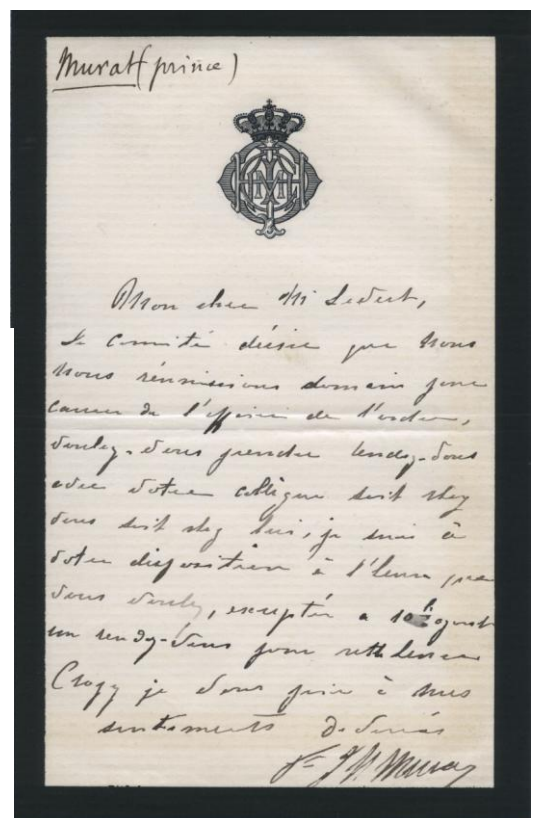 Murat (prince)
Mon cher Mr
Le Comité désire que nous
nous réunissions demain pour
causer de l'affaire de l'ordre,
voulez-vous prendre rendez-vous
avec votre collègue soit chez
vous soit chez lui, je suis à
votre disposition à l'heure que
vous voulez, excepté à 10h ayant
un rendez-vous pour cette heure
Croyez je vous prie à mes
sentiments dévoués
Murat